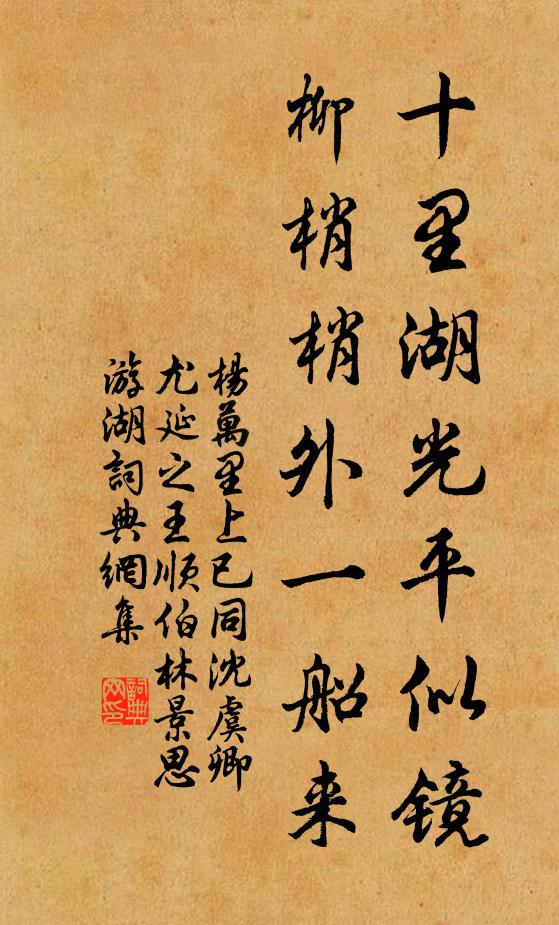 十里湖光平似镜
柳梢梢外一船来
楊萬里上巳同沈虞卿
尤延之王順伯林景思
游湖詞典網集
詞典网印